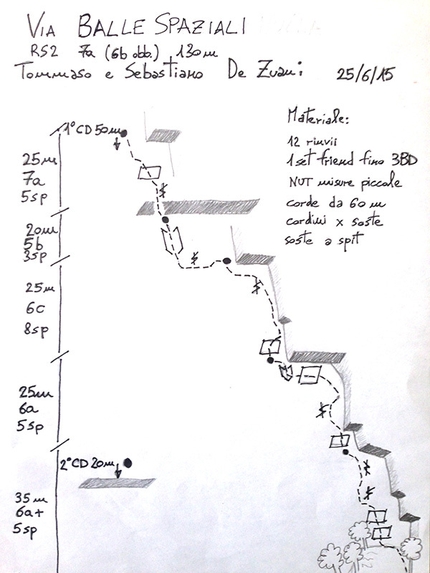 VIA BALLE SPAZIALI
RS2 7a (6b obb.) 130m
Tommaso e Sebastiano De Zuani 25/6/15
Materiale:
12 rinvii
1 set friend fino 3BD
NUT misure piccole
corde da 60 m
cordini x soste
soste a spit
1° CD 50m
25m
7a
5sp
20m
5b
3sp
25m
6c
8sp
25m
6a
5sp
2° CD 20m
35m
6a+
5sp